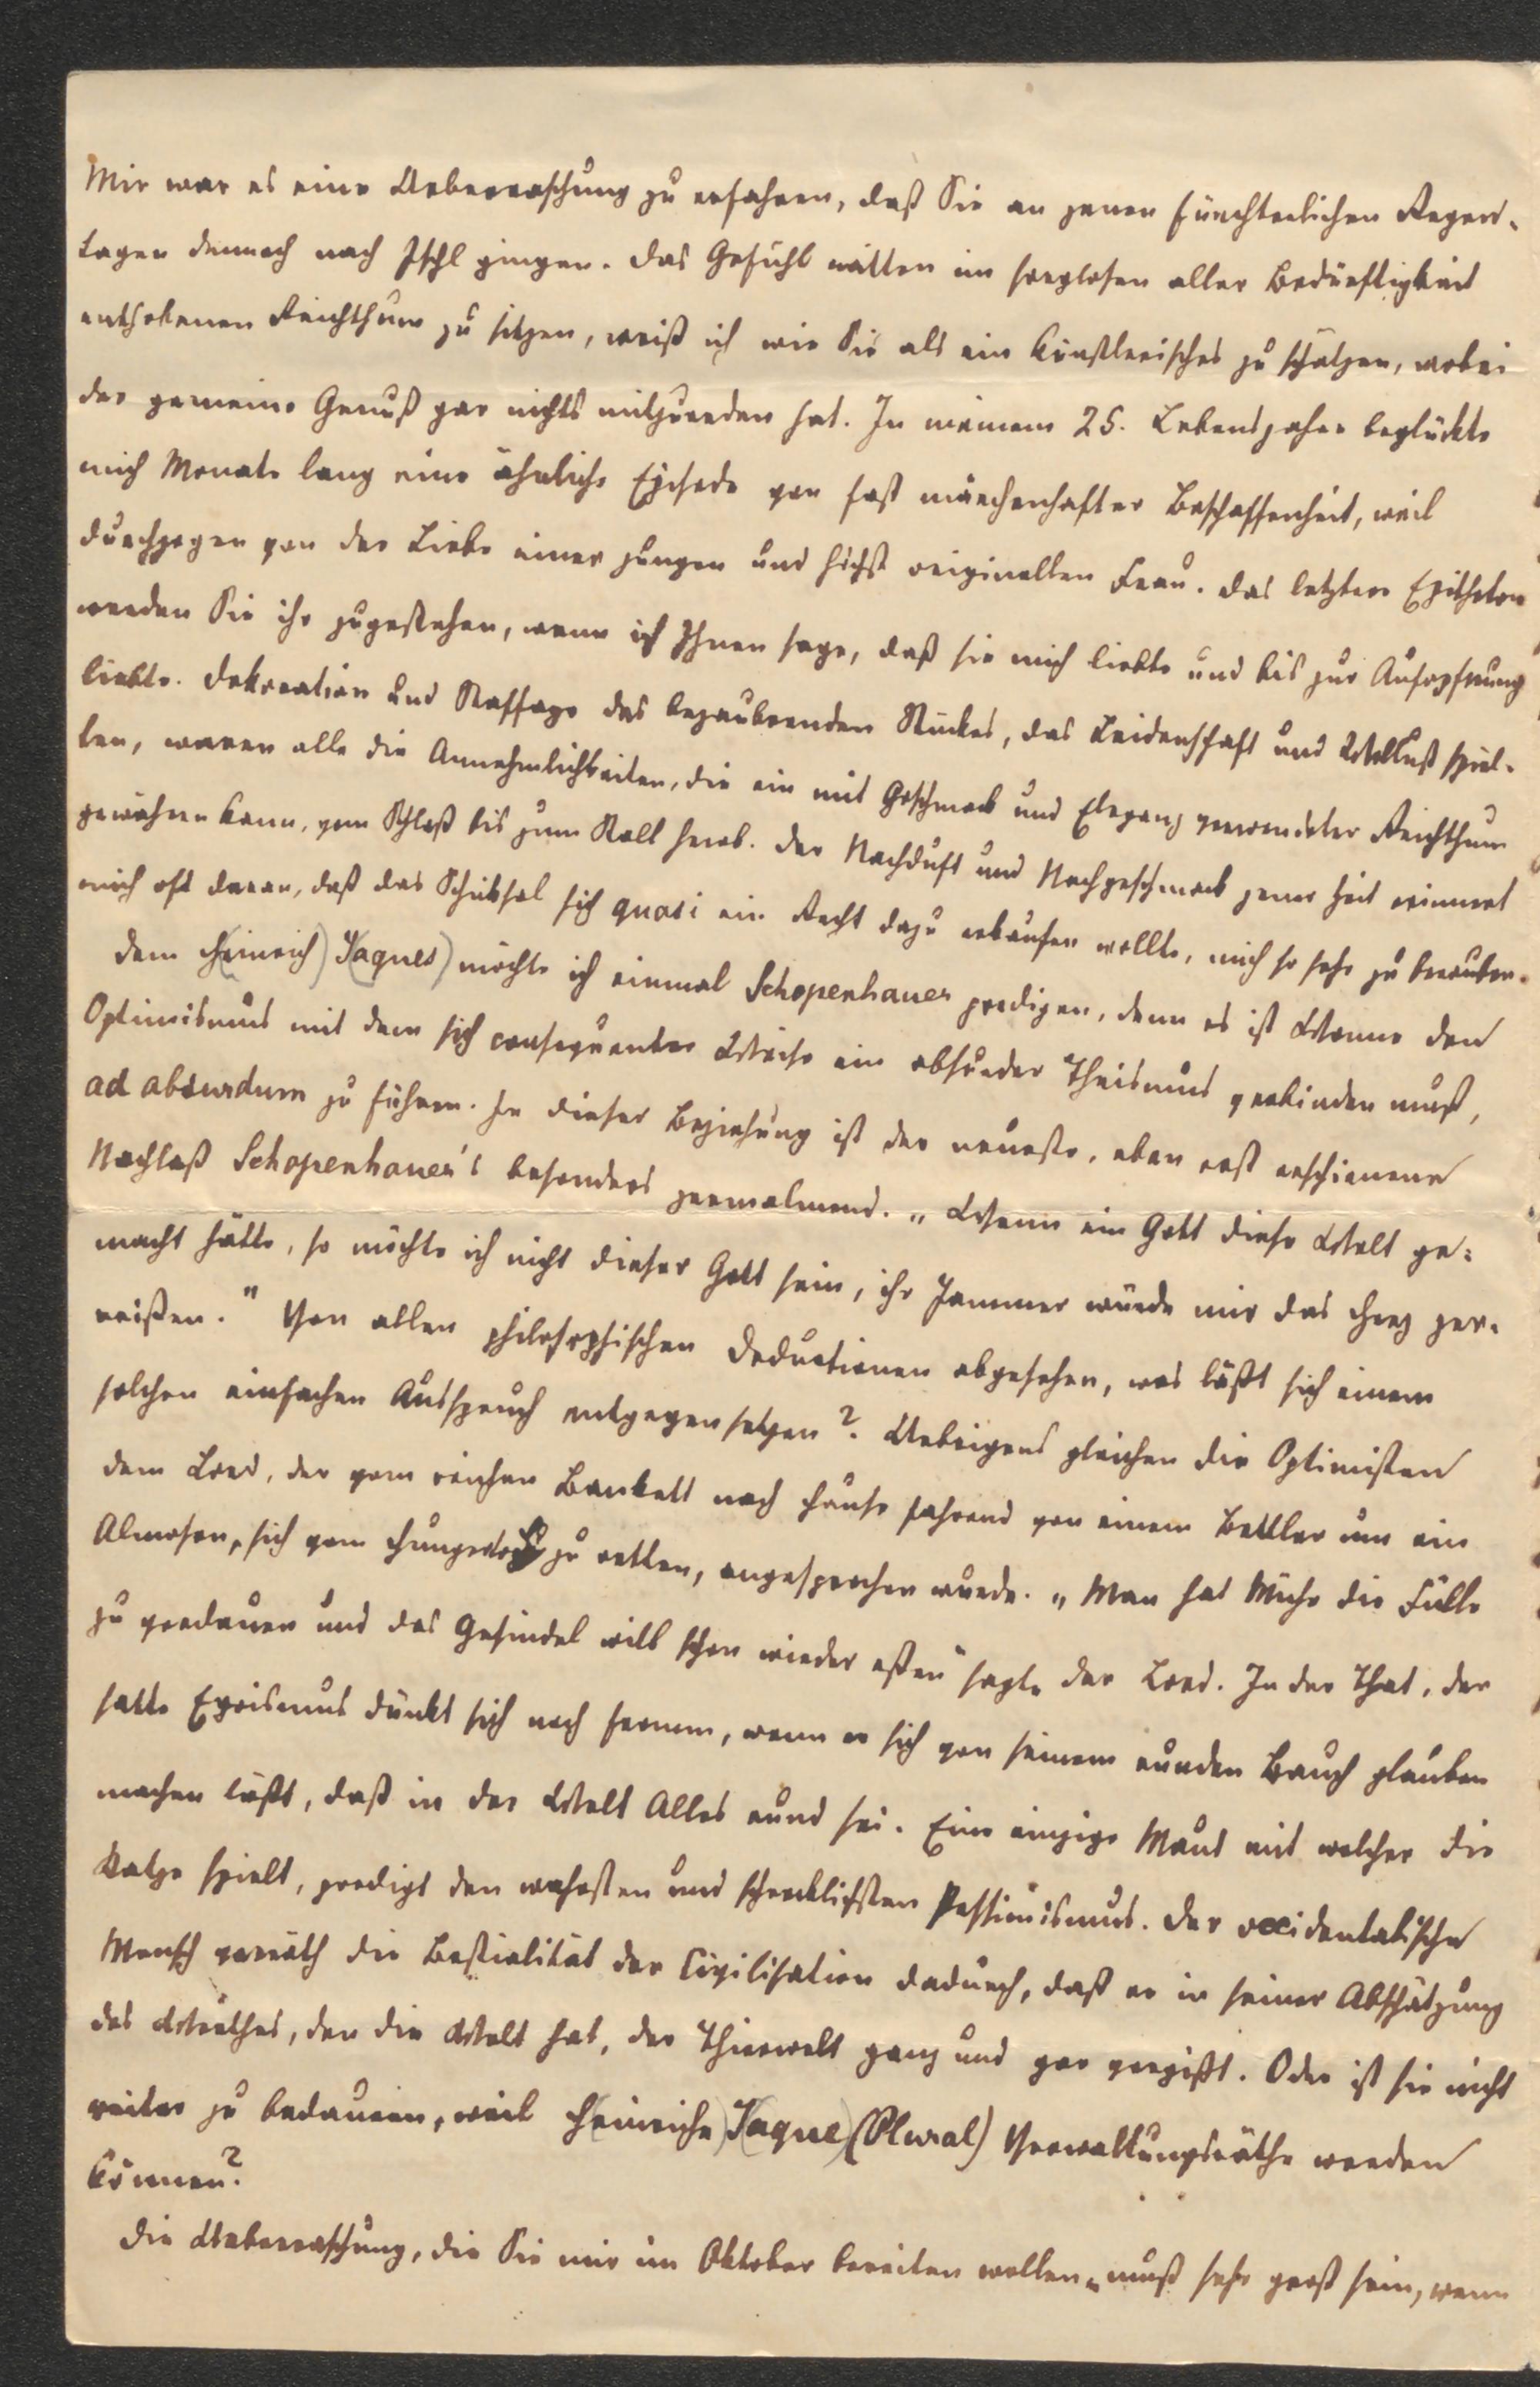 Mir war es eine Ueberraschung zu erfahren, daß Sie an jenen fürchterlichen Regen-
tagen dennoch nach Ischl gingen. Das Gefühl mitten im sorglosen aller Bedürftigkeit
enthobenen Reichthum zu sitzen, weiß ich wie Sie als ein künstlerisches zu schätzen, wobei
der gemeine Genuß gar nichts mitzureden hat. In meinem 25. Lebensjahre beglückte
mich Monate lang eine ähnliche Episode von fast märchenhafter Beschaffenheit, weil
durchzogen von der Liebe einer jungen und höchst originellen Frau. Das letztere Epitheton
werden Sie ihr zugestehen, wenn ich Ihnen sage, daß sie mich liebte und bis zur Aufopferung
liebte. Dekoration und Staffage des bezaubernden Stückes, das Leidenschaft und Wollust spiel-
ten, waren alle die Annehmlichkeiten, die ein mit Geschmack und Eleganz verwendeter Reichthum
gewähren kann, vom Schloß bis zum Stall herab. Der Nachduft und Nachgeschmack jener Zeit erinnert
mich oft daran, daß das Schicksal sich quasi ein Recht dazu erkaufen wollte, mich so sehr zu berauben.
Dem H(einrich) J(aques) möchte ich einmal Schopenhauer predigen, denn es ist Wonne den
Optimismus mit dem sich consequenter Weise ein absurder Theismus verbinden muß,
ad absurdum zu führen. In dieser Beziehung ist der neueste, eben erst erschienene
Nachlaß Schopenhauer's besonders zermalmend. „Wenn ein Gott diese Welt ge-
macht hätte, so möchte ich nicht dieser Gott sein, ihr Jammer würde mir das Herz zer-
reißen." Von allen philosophischen Deductionen abgesehen, was läßt sich einem
solchen einfachen Ausspruch entgegensetzen? Uebrigens gleichen die Optimisten
dem Lord, der vom reichen Bankett nach Hause fahrend von einem Bettler um ein
Almosen, sich vom Hungertod zu retten, angesprochen wurde. „Man hat Mühe die Fülle
zu verdauen und das Gesindel will schon wieder essen" sagte der Lord. In der That, der
satte Egoismus dünkt sich noch fromm, wenn er sich von seinem runden Bauch glauben
machen läßt, daß in der Welt Alles rund sei. Eine einzige Maus mit welcher die
Katze spielt, predigt den wahrsten und schrecklichsten Pessimismus. Der occidentalische
Mensch verräth die Bestialität der Civilisation dadurch, daß er in seiner Abschätzung
des Werthes, den die Welt hat, der Thierwelt ganz und gar vergißt. Oder ist sie nicht
weiter zu bedauern, weil H(einriche) J(aque) (Plural) Verwaltungsräthe werden
können?
Die Ueberraschung, die Sie mir im Oktober bereiten wollen, muß sehr groß sein, wenn